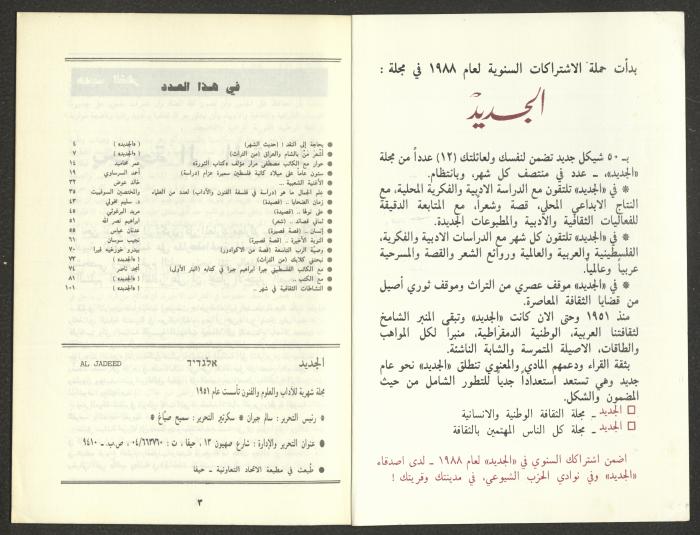 بدأت حملة الاشتراكات السنوية لعام ١٩٨٨ في مجلة :
الجديد
بـ ٥٠ شيكل جديد تضمن لنفسك ولعائلتك (١٢) عدداً من مجلة
«الجديد»، ـ عدد في منتصف كل شهر، وبانتظام.
* في «الجديد» تلتقون مع الدراسة الادبية والفكرية المحلية، مع
النتاج الابداعي المحلي، قصة وشعراً، مع المتابعة الدقيقة
للفعاليات الثقافية والأدبية والمطبوعات الجديدة.
* في «الجديد» تلتقون كل شهر مع الدراسات الادبية والفكرية،
الفلسطينية والعربية والعالمية وروائع الشعر والقصة والمسرحية
عربياً وعالمياً.
* في «الجديد» موقف عصري من التراث وموقف ثوري أصيل
من قضايا الثقافة المعاصرة.
منذ ١٩٥١ وحتى الان كانت «الجديد» وتبقى المنبر الشامخ
لثقافتنا العربية، الوطنية الدمقراطية، منبراً لكل المواهب
والطاقات، الاصيلة المتمرسة والشابة الناشئة.
بثقة القراء ودعمهم المادي والمعنوي تنطلق «الجديد» نحو عام
جديد وهي تستعد استعداداً جدياً للتطور الشامل من حيث
المضمون والشكل.
الجديد ـ مجلة الثقافة الوطنية والانسانية
الجديد ـ مجلة كل الناس المهتمين بالثقافة
اضمن اشتراكك السنوي في «الجديد» لعام ١٩٨٨ ـ لدى اصدقاء
«الجديد» وفي نوادي الحزب الشيوعي، في مدينتك وقريتك !
في هذا العدد
بحاجة إلى النقد ( حديث الشهر) («الجديد» ) ٤
أشعر من بالشام والعراق (من التراث) («الجديد» ) ٧
حوار مع الكاتب مصطفى مرار مؤلف «كتاب الثورة» عمر محاميد ١٤
ستون عاماً على ميلاد كاتبة فلسطين سميرة عزام (دراسة) أحمد ١٩
الأغنية الشعبية .. خالد عوض ٣٣
علم الجمال ما هو (دراسة في فلسفة الفنون والآداب) لعدد من العلماء والمختصين السوفييت ٣٥
زمان الضحايا .. (قصيدة) د. سليم مخولي ٤٣
على نولها .. (قصيدة) مريد البرغوثي ٤٥
ثماني قصائد .. (شعر) ابراهيم نصر الله ٥١
إنسان .. (قصة قصيرة) عدنان عباس ٥٥
النوبة الأخيرة .. (قصة قصيرة) نجيب سوسان ٦١
وصية الرب التاسعة (قصة من الاكوادور) بيدرو خورخيه فيرا ٧٠
نبحتني كلابك (من التراث) («الجديد» ) ٧٣
مع الكاتب الفلسطيني جبرا ابراهيم جبرا في كتابه (البئر الأولى) أنجد ناصر ٧٤
مع الكتب .. («الجديد» ) ٨١
النشاطات الثقافية في شهر .. («الجديد» ) ١٠١
الجديد אלגדיד AL JADEED
مجلة شهرية للآداب والعلوم والفنون تأسست عام ١٩٥١
● رئيس التحرير : سالم جبران ● سكرتير التحرير : سميح صباغ ●
● عنوان التحرير والإدارة : شارع صهيون ١٣، حيفا ، ت : ٠٤/٦٦٣٧٦٠، ص.ب. ـ ٩٤١٠
● طُبعت في مطبعة الاتحاد التعاونية ـ حيفا
٣